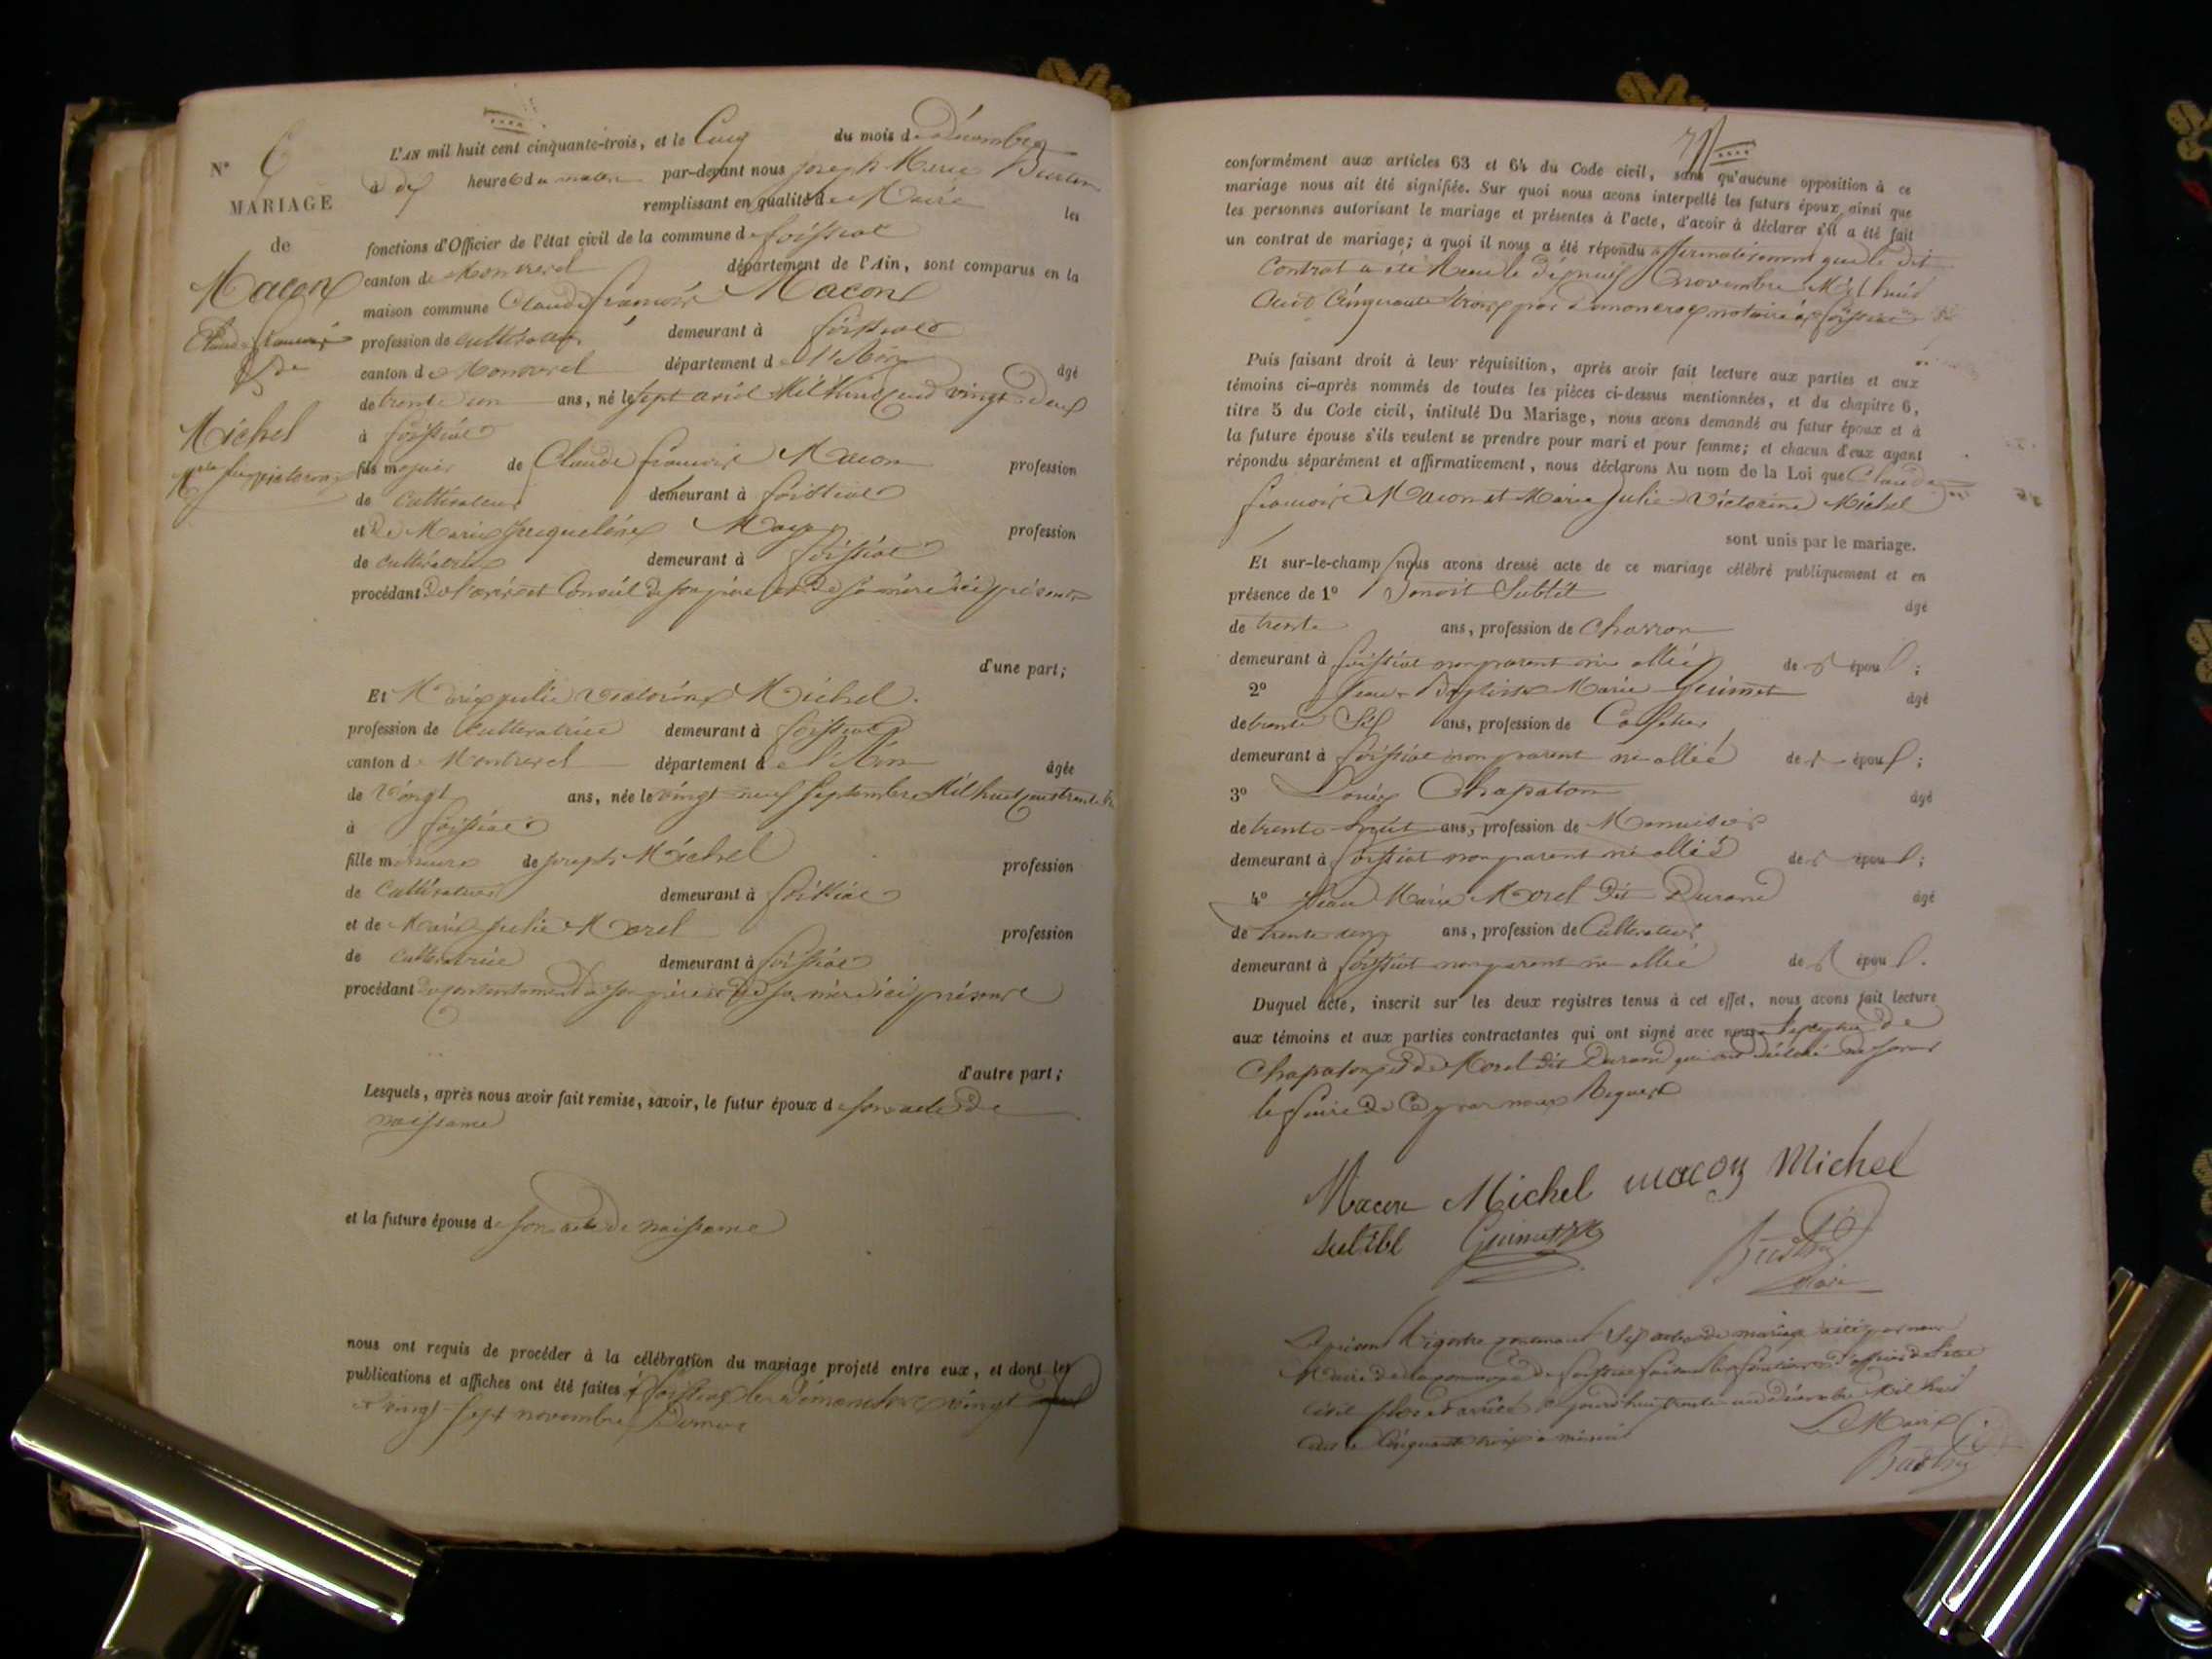 N° 6
MARIAGE
de
Macon
Claude françois
& de
Michel
Mie julie victorine
L'AN mil huit cent cinquante-trois, et le Cinq du mois de décembre
à dix heures du matin par-devant nous joseph Marie
remplissant en qualité de Maire les
fonctions d'Officier de l'état civil de la commune de foissiat
canton de Montrevel département de l'Ain, sont comparus en la
maison commune Claude françois Macon
profession de cultivateur demeurant à foissiat
canton de Montrevel département de l'Ain âgé
de trente un ans, né le sept avril Mil huit cent vingt deux
à foissiat
fils majeur de Claude françois Macon profession
de cultivateur demeurant à foissiat
et de Marie jacqueline profession
de cultivatrice demeurant à foissiat
procédant de l'avis et Conseil de son père et de sa mère ici présents
d'une part;
Et Marie julie victorine Michel.
profession de cultivatrice demeurant à foissiat
canton de Montrevel département de l'Ain âgée
de vingt ans, née le vingt neuf septembre Mil huit cent trente trois
à foissiat
fille mineure de joseph Michel profession
de cultivateur demeurant à foissiat
et de Marie julie Morel profession
de cultivatrice demeurant à foissiat
procédant du consentement de son père et de sa mère ici présents
d'autre part;
Lesquels, après nous avoir fait remise, savoir, le futur époux de son acte de
naissance
et la future épouse de son acte de naissance
nous ont requis de procéder à la célébration du mariage projeté entre eux, et dont les
publications et affiches ont été faites à foissiat les dimanches vingt
et vingt sept novembre dernier
conformément aux articles 63 et 64 du Code civil, sans qu'aucune opposition à ce
mariage nous ait été signifiée. Sur quoi nous avons interpellé les futurs époux ainsi que
les personnes autorisant le mariage et présentes à l'acte, d'avoir à déclarer s'il a été fait
un contrat de mariage; à quoi il nous a été répondu affirmativement que le dit
Contrat a été Recu le dix neuf novembre Mil huit
Cent Cinquante trois par notaire à foissiat
Puis faisant droit à leur réquisition, après avoir fait lecture aux parties et aux
témoins ci-après nommés de toutes les pièces ci-dessus mentionnées, et du chapitre 6,
titre 5 du Code civil, intitulé Du Mariage, nous avons demandé au futur époux et à
la future épouse s'ils veulent se prendre pour mari et pour femme; et chacun d'eux ayant
répondu séparément et affirmativement, nous déclarons Au nom de la Loi que Claude
françois Macon et Marie julie victorine Michel
sont unis par le mariage.
Et sur-le-champ nous avons dressé acte de ce mariage célébré publiquement et en
présence de 1° Benoit Subtil âgé
de trente ans, profession de Charron
demeurant à foissiat non parent ni allié des époux;
2° Jean Baptiste Marie Guimet âgé
de trente six ans, profession de Cafetier
demeurant à foissiat non parent ni allié des époux;
3° Chapaton âgé
de trente huit ans, profession de Menuisier
demeurant à foissiat non parent ni allié des époux;
4° Jean Marie Morel dit Durand âgé
de trente ans, profession de Cultivateur
demeurant à foissiat non parent ni allié des époux.
Duquel acte, inscrit sur les deux registres tenus à cet effet, nous avons fait lecture
aux témoins et aux parties contractantes qui ont signé avec nous à l'exception de
Chapaton et de Morel dit Durand qui ont déclaré ne savoir
le faire de Ce par nous Requis
Macon Michel macon Michel
subtil Guimet
Maire
Le présent Registre contenant Six actes de mariage a été par nous
Maire de la commune de foissiat faisant les fonctions d'officier de l'état
civil clos et arrêté ce jourd'hui trente un décembre Mil huit
cent Cinquante trois à minuit
Le Maire